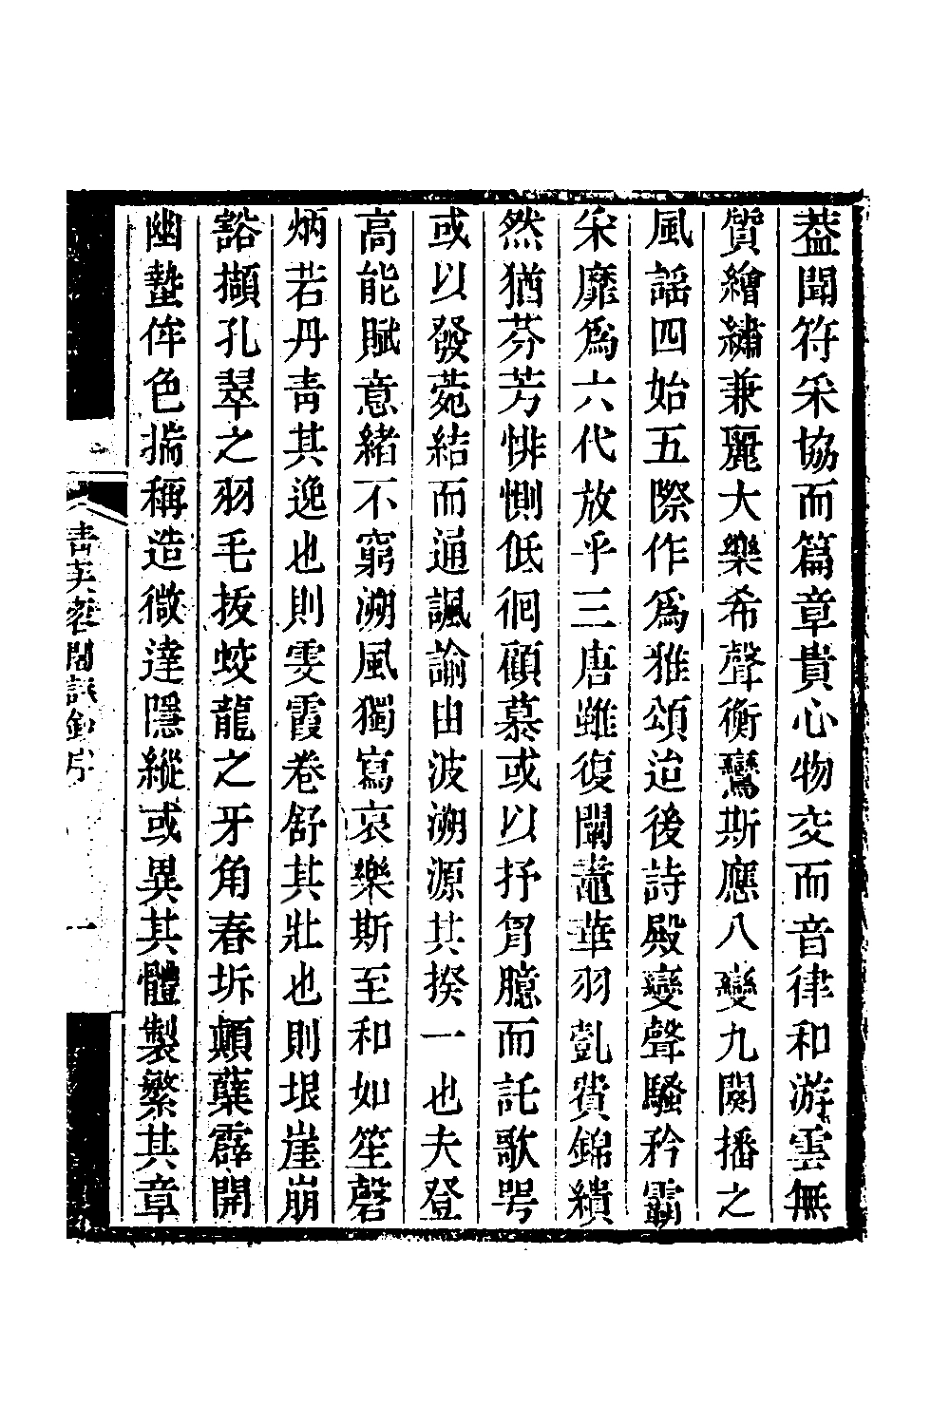 葢聞符采協而篇章貴心物交而音律和游雲無
質繪繡兼麗大樂希聲衡鸞斯應八變九闋播之
風謡四始五際作爲雅頌迨後詩殿變聲騷矜霸
采靡爲六代放乎三唐雖復闡鼃華羽亂費錦繢
然猶芬芳悱惻低徊顧慕或以抒胷臆而託歌咢
或以發菀結而通諷諭由波溯源其揆一也夫登
高能賦意緒不窮溯風獨寫哀樂斯至和如笙磬
炳若丹青其逸也則雯霞卷舒其壯也則垠崖崩
豁擷孔翠之羽毛拔蛟龍之牙角春坼顛蘖霹開
幽蟄侔色揣稱造微達隱縱或異其體製繁其章
青芙蓉閣詩鈔序
一